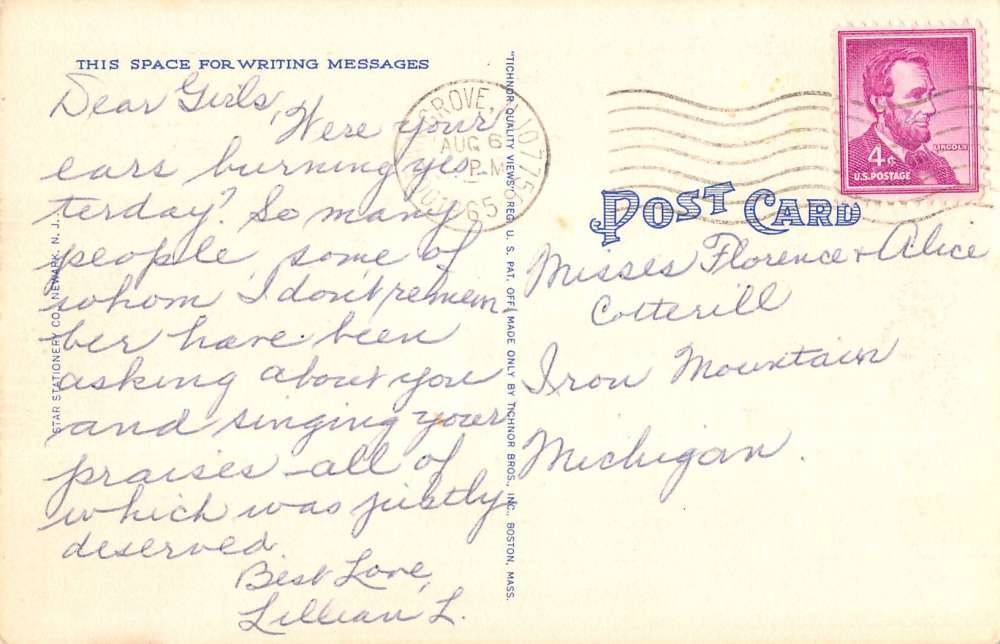 THIS SPACE FOR WRITING MESSAGES
Dear Girls,
Were your
ears burning yes
terday? So many
people, some of
whom I don't remem
ber have been
asking about you
and singing your
praises - all of
which was justly
deserved.
Best Love,
Lillian L.
STAR STATIONERY CO., NEWARK, N. J.
"TICHNOR QUALITY VIEWS," REG. U. S. PAT. OFF. MADE ONLY BY TICHNOR BROS., INC., BOSTON, MASS.
GROVE, N.J. 07756
AUG 6
PM
65
LINCOLN
4¢
U.S. POSTAGE
POST CARD
Misses Florence + Alice
Cotterill
Iron Mountain
Michigan.